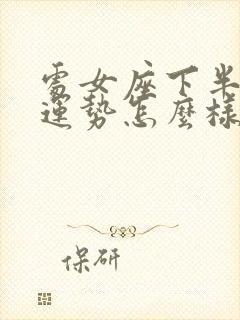 處女座下半
運勢怎麼樣
保研